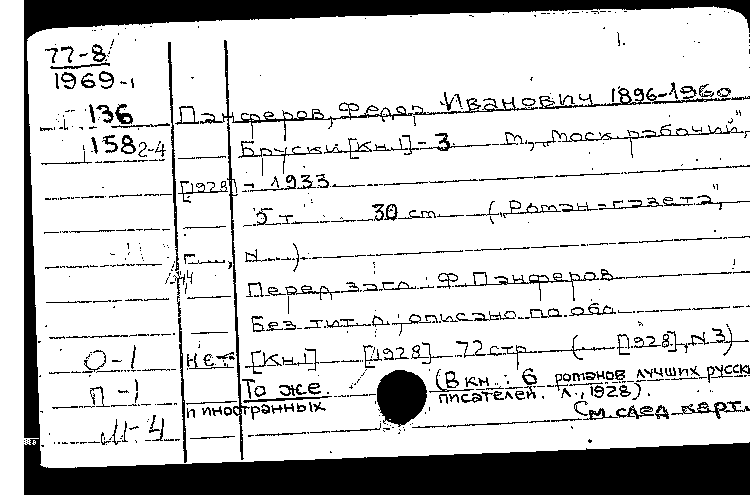 77-8/
1969-1
1.
136 Панферов, Федор Иванович 1896-1960
1582-4 Бруски [Кн.1]- 3 М., „Моск. рабочий",
[1928] - 1933.
5 т. 30 см. („Роман-газета",
г..., N...)
Перед загл.: Ф. Панферов
Без тит. л.; описано по обл.
О-1 нет [Кн.1] [1928] 72 стр (... [1928], N 3)
П-1 То же (В кн.: 6 романов лучших русски
и иностранных писателей. Л., 1928).
М-4 См. след. карт.